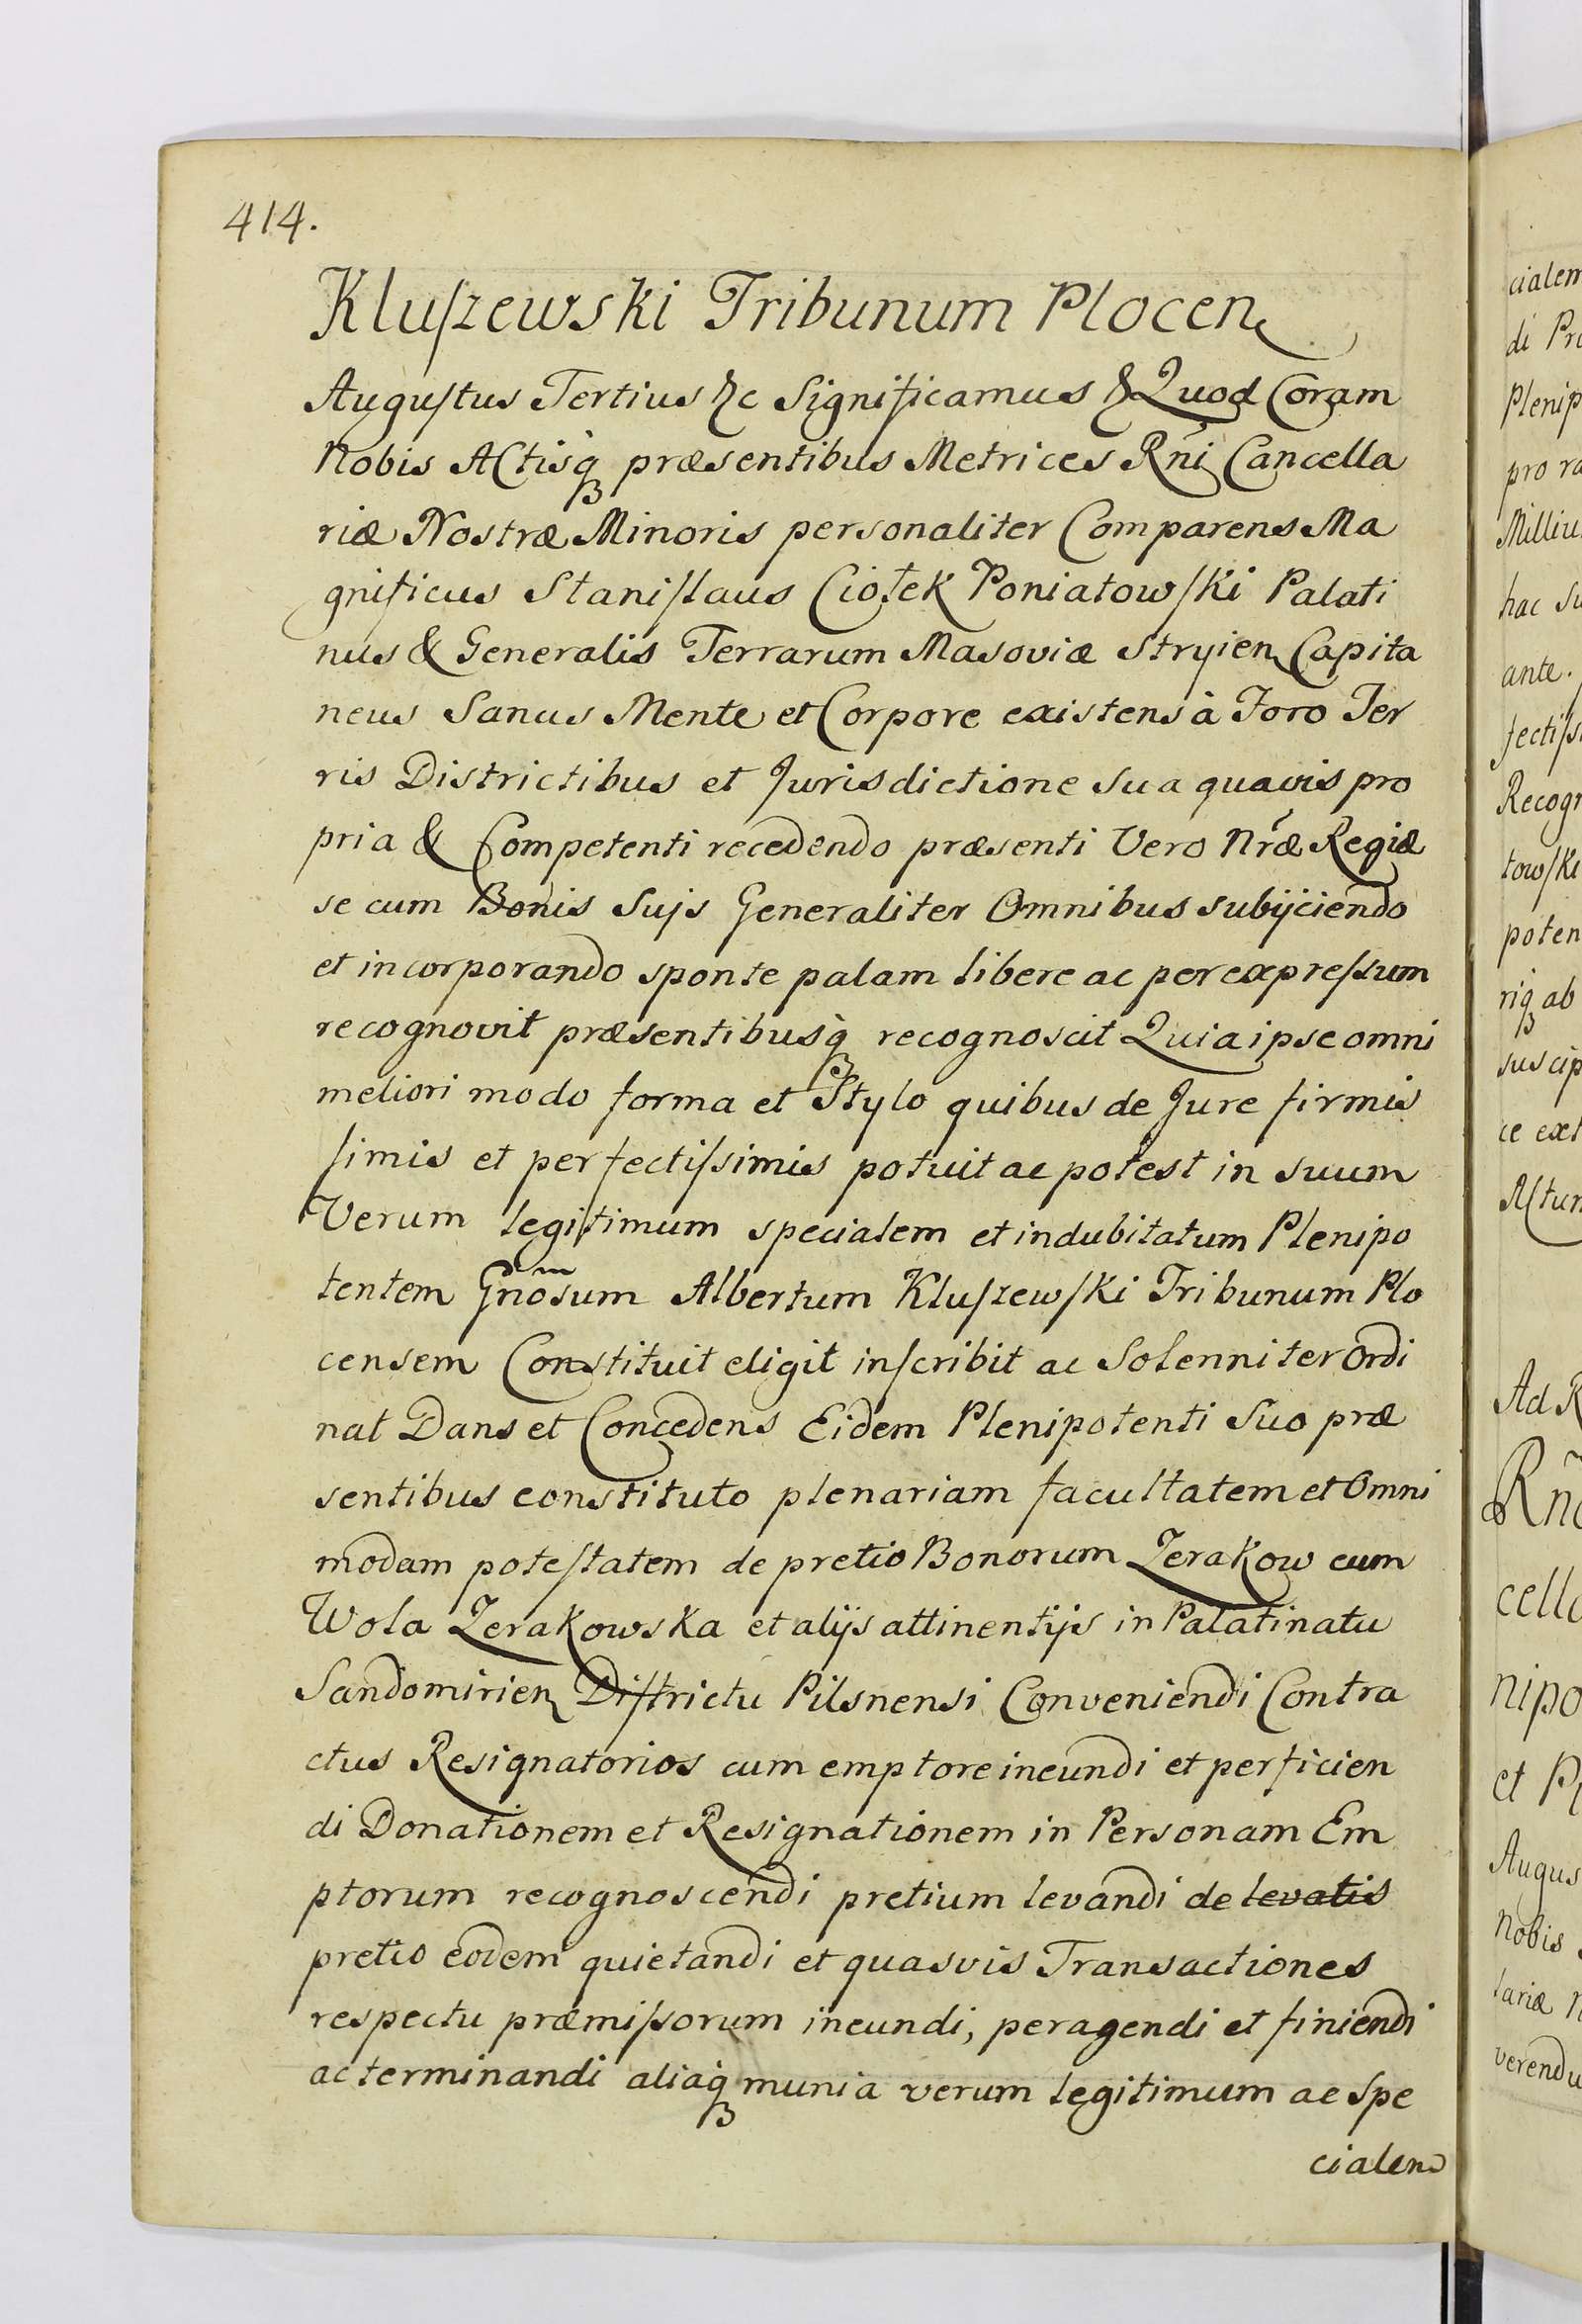 414.
Kluſzewski Tribunum Plocen
Auguſtus Tertius &c Significamus & Quod Coram
Nobis Actisq̀ꝫ præsentibus Metrices Rńi Cancella
riæ Nostræ Minoris personaliter Comparens Ma
gnificus Staniſlaus Ciołek Poniatowſki Palati
nus & Generalis Terrarum Masoviæ Stryien Capita
neus Sanus Mente et Corpore existens à Foro Ter
ris Districtibus et Jurisdictione Sua quavis pro
pria & Competenti recedendo præsenti Vero Nræ̃ Regiæ
se cum Bonis Sujs Generaliter Omnibus subijciendo
et incorporando sponte palam libere ac per expreſsum
recognovit præsentibusq̀ꝫ recognoscit Quia ipse omni
meliori modo forma et Stylo quibus de Jure firmis
ſimis et perfectiſsimis potuit ac potest in suum
Verum legitimum specialem et indubitatum Plenipo
tentem Gñosum Albertum Kluſzewſki Tribunum Plo
censem Constituit eligit inſcribit ac Solenniter Ordi
nat Dans et Concedens Eidem Plenipotenti Suo præ
sentibus constituto plenariam facultatem et Omni
modam poteſtatem de pretio Bonorum Zerakow cum
Wola Zerakowska et alijs attinentijs in Palatinatu
Sandomirien Diſtrictu Pilsnensi Conveniendi Contra
ctus Resignatorios cum emptore ineundi et perficien
di Donationem et Resignationem in Personam Em
ptorum recognoscendi pretium levandi de levatis
pretio eodem quietandi et quasvis Transactiones
respectu præmiſsorum ineundi, peragendi et finiendi
ac terminandi aliaq̀ꝫ munia verum legitimum ac Spe
cialem
cialem
di Pro
Plenip
pro ra
Milliu
hac Su
ante.
fectiſs
Recogn
towſki
poten
riqꝫ ab
suscip
ce ext
Actum
Ad R
Rñ
cella
nipo
et P
Augus
Nobis
lariæ N
verendu